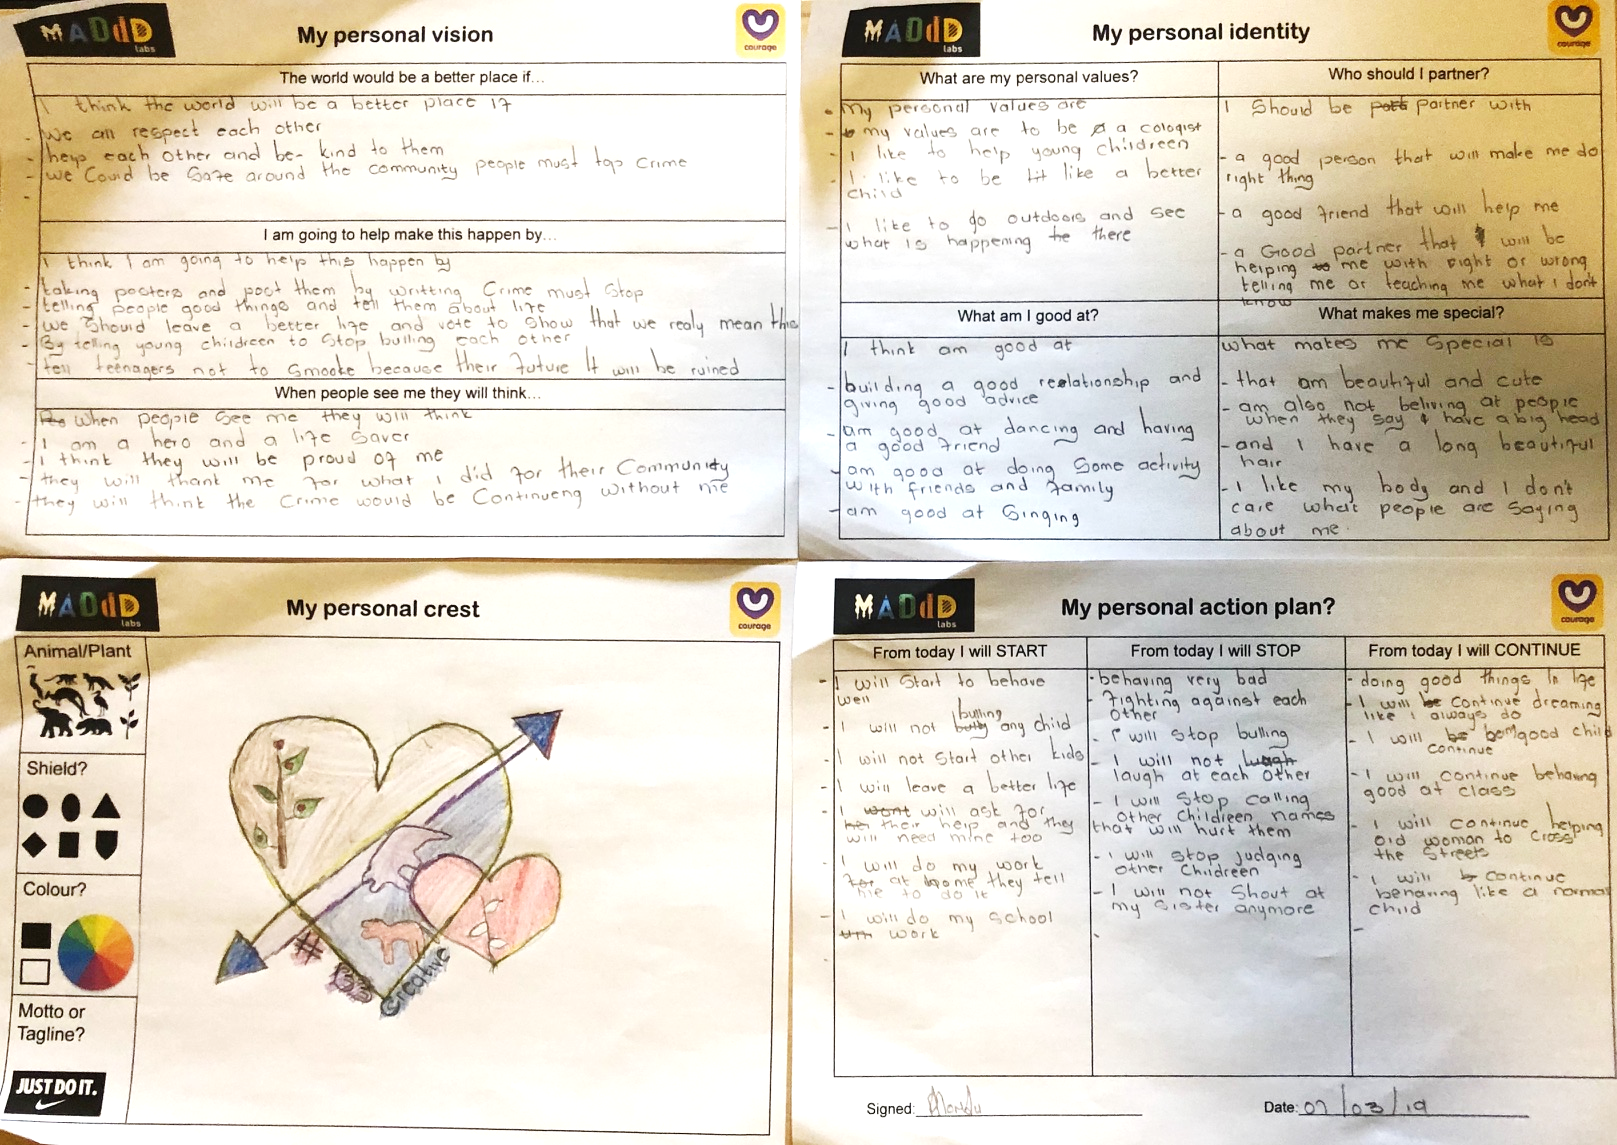 MADdD
labs
My personal vision
courage
The world would be a better place if...
I think the world will be a better place if
- we all respect each other
- help each other and be- kind to them
- we Could be Safe around the community people must top Crime
-
I am going to help make this happen by...
I think I am going to help this happen by
- taking posters and post them by writting Crime must Stop
- telling people good things and tell them about life
- we Should leave a better life and vote to Show that we realy mean this
- By telling young childreen to Stop bulling each other
- tell teenagers not to Smooke because their future It will be ruined
When people see me they will think...
when people See me they will think
- I am a hero and a life Saver
- I think they will be proud of me
- they will thank me for what I did for their Community
- they will think the Crime would be Continueng without me
MADdD
labs
My personal identity
courage
What are my personal values?
- My personal values are
- my values are to be a cologist
- I like to help young childreen
- I like to be like a better
child
- I like to go outdoors and see
what is happening there
Who should I partner?
I Should be partner with
- a good person that will make me do
right thing
- a good friend that will help me
- a Good partner that will be
helping me with right or wrong
telling me or teaching me what I don't
know
What am I good at?
I think am good at
- building a good relationship and
giving good advice
- am good at dancing and having
a good friend
- am good at doing Some activity
with friends and family
- am good at Singing
What makes me special?
what makes me Special is
- that am beautiful and cute
- am also not beliving at people
when they say I have a big head
- and I have a long beautiful
hair
- I like my body and I don't
care what people are Saying
about me.
MADdD
labs
My personal crest
courage
Animal/Plant
Shield?
Colour?
Motto or
Tagline?
JUST DO IT.
#
creative
MADdD
labs
My personal action plan?
courage
From today I will START
- I will Start to behave
well
- I will not bulling any child
- I will not Start other kids
- I will leave a better life
- I will ask for
their help and they
will need mine too
- I will do my work
at home they tell
me to do it
- I will do my School
work
From today I will STOP
- behaving very bad
- Fighting against each
other
- I will stop bulling
- I will not
laugh at each other
- I will Stop calling
other childreen names
that will hurt them
- I will Stop judging
other Childreen
- I will not Shout at
my Sister anymore
-
From today I will CONTINUE
- doing good things in life
- I will Continue dreaming
like I always do
- I will good child
continue
- I will continue behaving
good at class
- I will Continue helping
old woman to Cross
the Streets
- I will Continue
behaving like a normal
child
-
Signed:
Date: 07/03/19